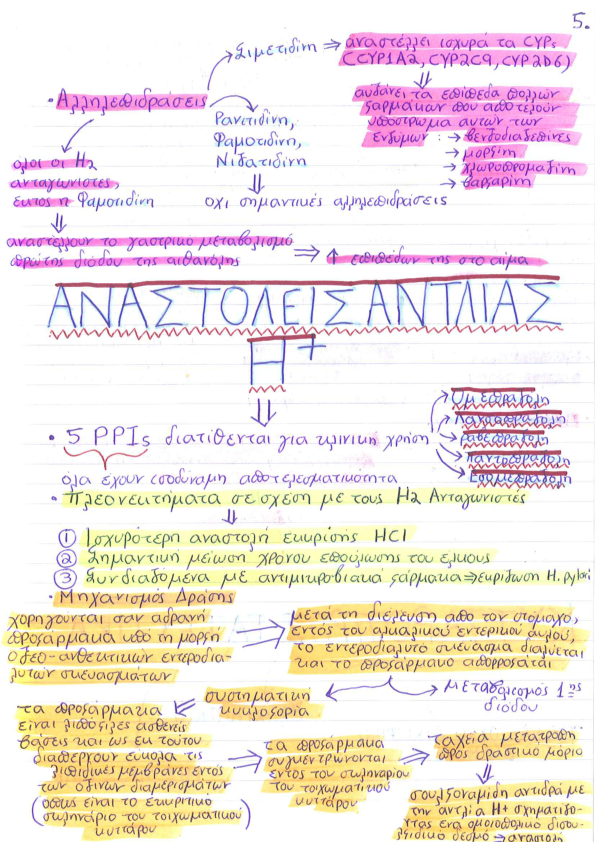 5.
Σιμετιδίνη ⇒ αναστέλλει ισχυρά τα CYPs
(CYP1A2, CYP2C9, CYP2D6)
• Αλληλεπιδράσεις
αυξάνει τα επίπεδα πολλών
φαρμάκων που αποτελούν
υπόστρωμα αυτών των
ενζύμων : → βενζοδιαζεπίνες
→ μορφίνη
→ χλωροπρομαζίνη
→ βαρφαρίνη
Ρανιτιδίνη,
Φαμοτιδίνη,
Νιζατιδίνη
⇓
όχι σημαντικές αλληλεπιδράσεις
όλοι οι H2
ανταγωνιστές,
εκτός η Φαμοτιδίνη
⇓
αναστέλλουν το γαστρικό μεταβολισμό
πρώτης διόδου της αιθανόλης ⇒ ↑ επιπέδων της στο αίμα
ΑΝΑΣΤΟΛΕΙΣ ΑΝΤΛΙΑΣ
H+
⇓
• 5 PPIs διατίθενται για κλινική χρήση
Ομεπραζόλη
Λανσοπραζόλη
Ραβεπραζόλη
Παντοπραζόλη
Εσομεπραζόλη
όλα έχουν ισοδύναμη αποτελεσματικότητα
• Πλεονεκτήματα σε σχέση με τους H2 Ανταγωνιστές
⇓
① Ισχυρότερη αναστολή έκκρισης HCl
② Σημαντική μείωση χρόνου επούλωσης του έλκους
③ Συνδιαδομένα με αντιμικροβιακά φάρμακα ⇒ εκρίζωση H. pylori
• Μηχανισμός Δράσης
χορηγούνται σαν αδρανή
προφάρμακα υπό τη μορφή
οξεο-ανθεκτικών εντεροδια-
λυτών σκευασμάτων
⇒ μετά τη διέλευση από τον στόμαχο,
εντός του αλκαλικού εντερικού αυλού,
το εντεροδιαλυτό σκεύασμα διαλύεται
και το προφάρμακο απορροφάται
μεταβολισμός 1ης
διόδου
συστηματική
κυκλοφορία
τα προφάρμακα
είναι λιπόφιλες ασθενείς
βάσεις και ως εκ τούτου
διαπερνούν εύκολα τις
λιπιδικές μεμβράνες εντός
των όξινων διαμερισμάτων
(όπως είναι το εκκριτικό
σωληνάριο του τοιχωματικού
κυττάρου)
⇒ τα προφάρμακα
συγκεντρώνονται
εντός του σωληναρίου
του τοιχωματικού
κυττάρου
⇒ ταχεία μετατροπή
προς δραστικό μόριο
⇓
σουλφοναμίδη αντιδρά με
την αντλία H+ σχηματίζο-
ντας ένα ομοιοπολικό δισου-
λφιδικό δεσμό → αναστολή